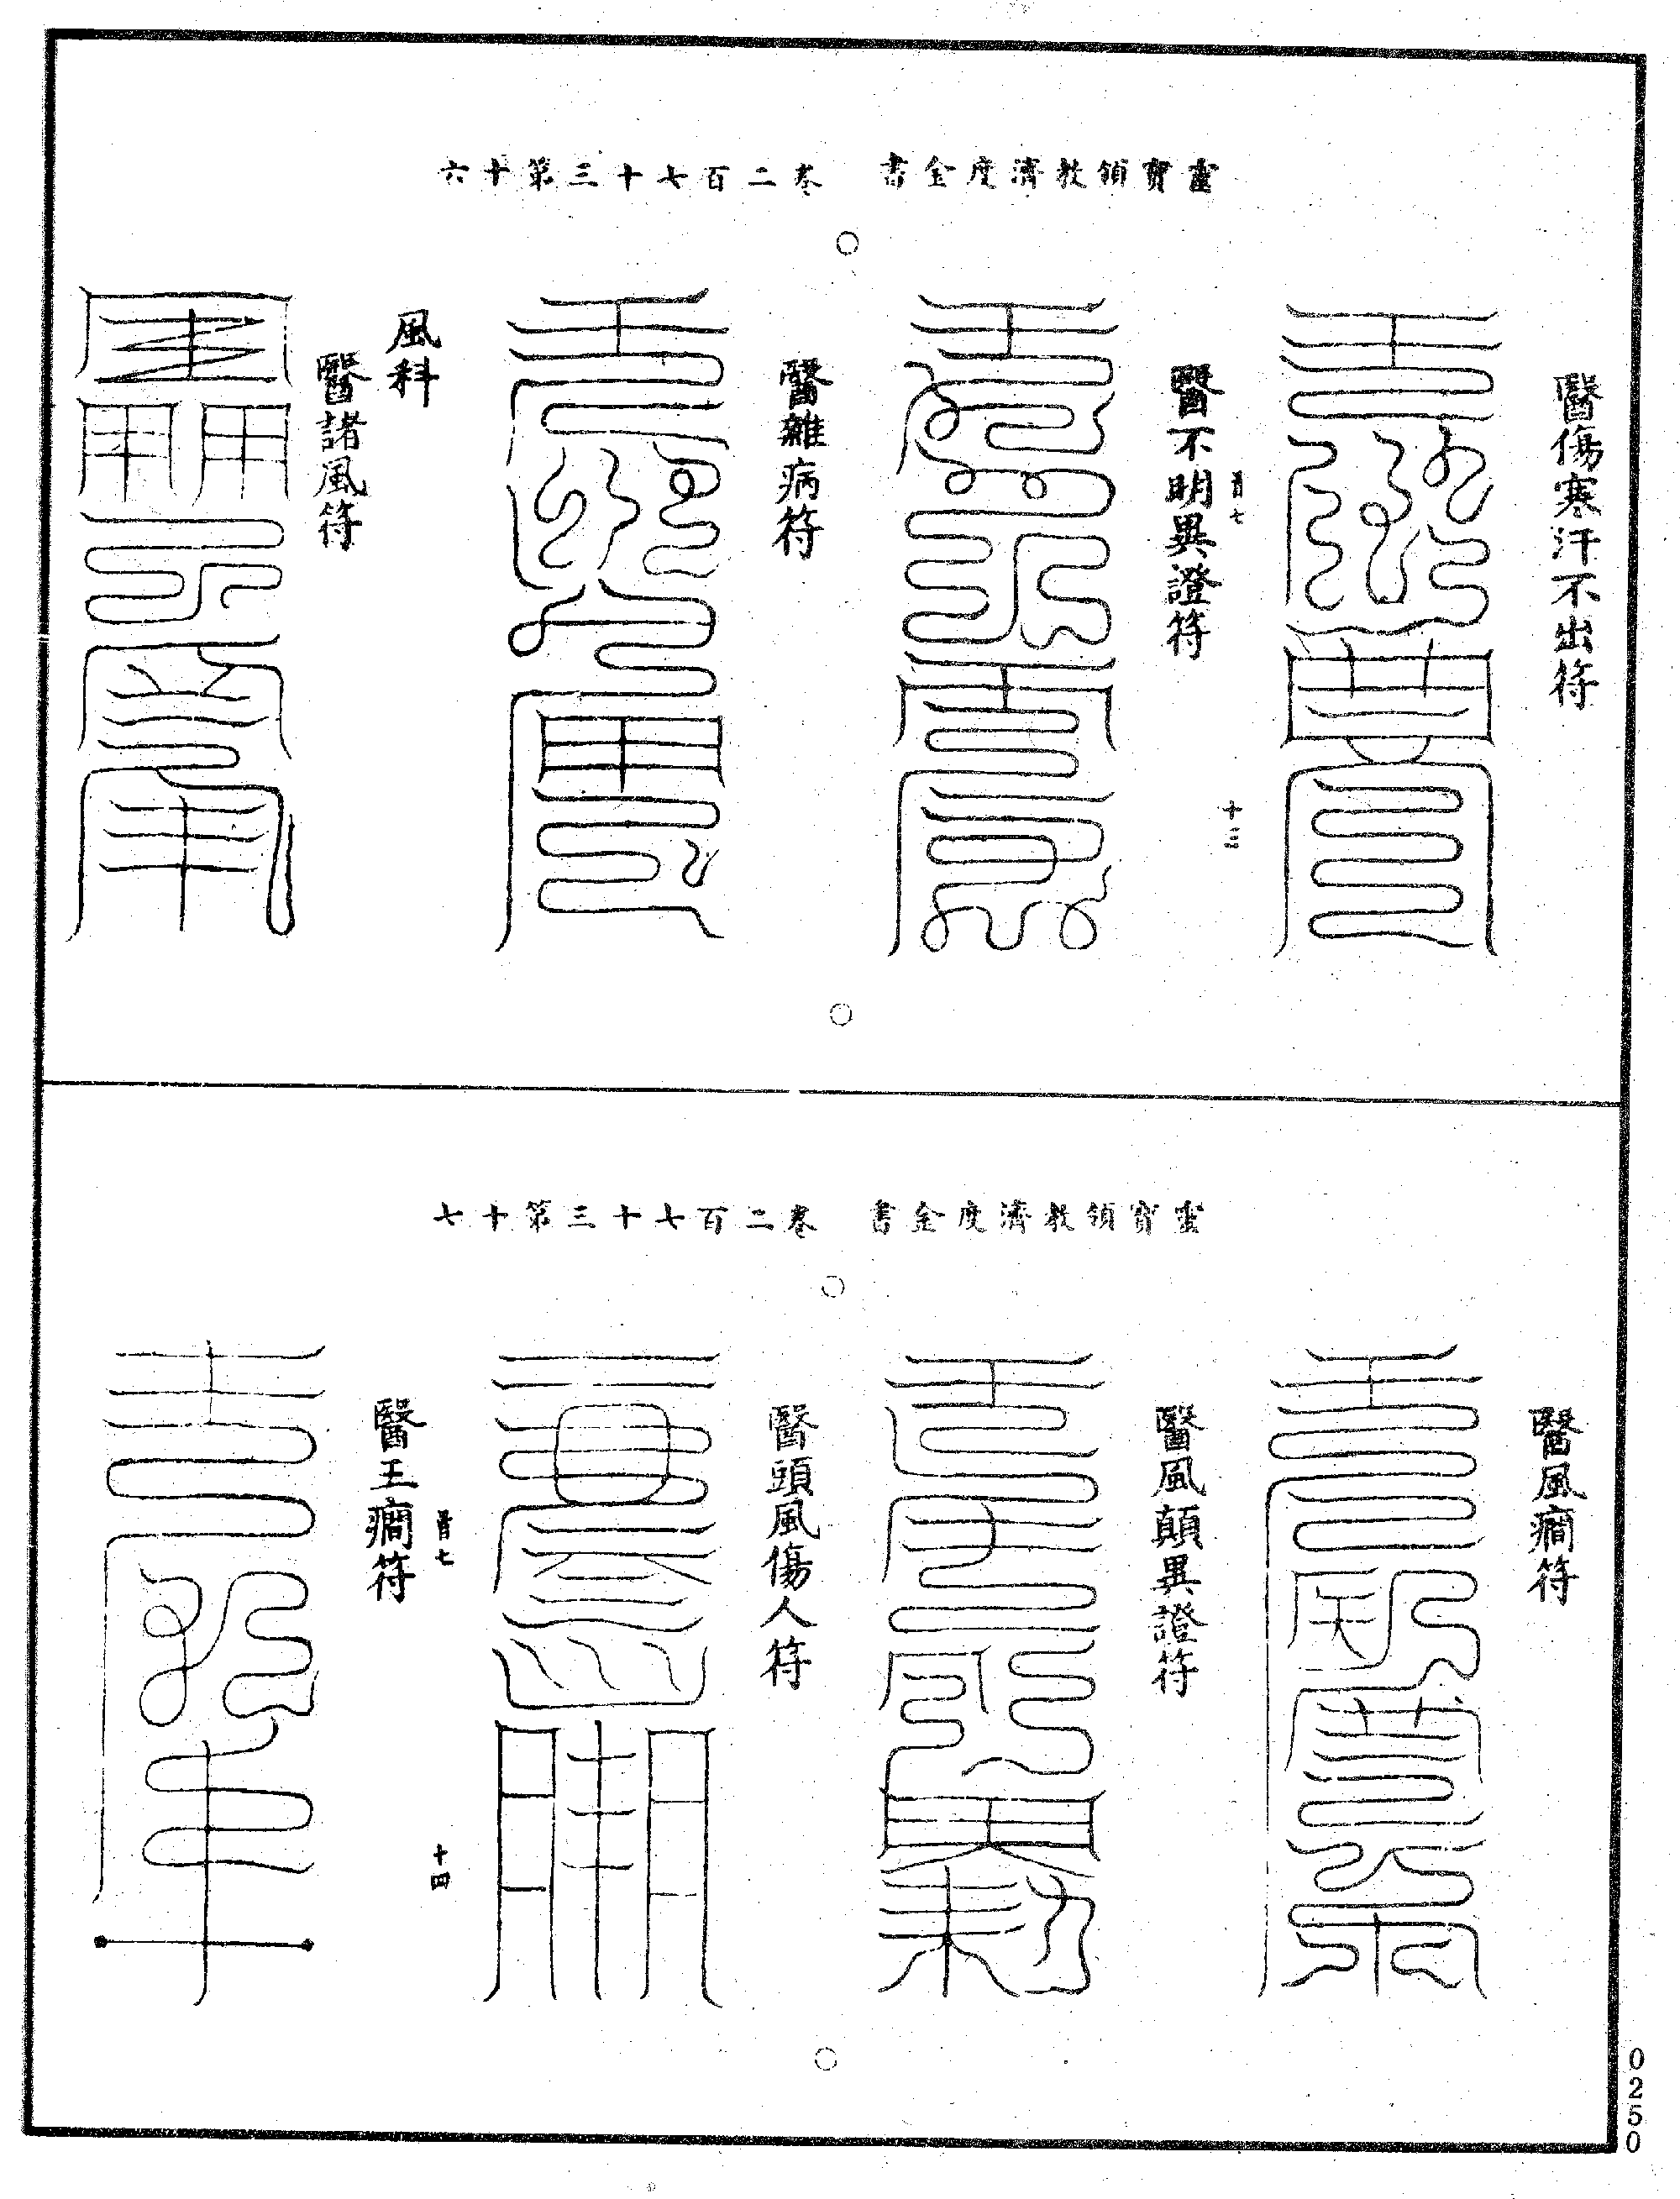 靈寶領教濟度金書　卷二百七十三第十六
醫傷寒汗不出符
首七
十三
醫不明異證符
醫雜病符
風科
醫諸風符
靈寶領教濟度金書　卷二百七十三第十七
醫風癇符
醫風顛異證符
醫頭風傷人符
首七
十四
醫五癇符
0250